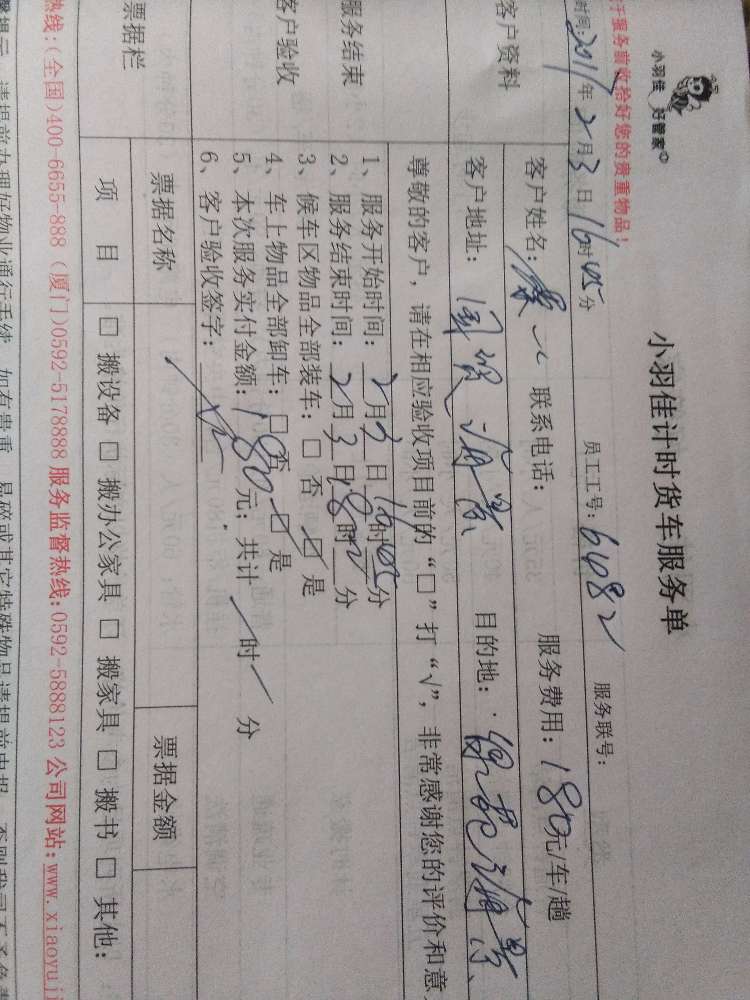 小羽佳 好管家
小羽佳计时货车服务单
于服务前收拾好您的贵重物品!
时间:2011年2月3日16时45分 员工工号:6082 服务联号:
客户资料
客户姓名: 联系电话: 服务费用:180元/车/趟
客户地址:国贸海景 目的地: 海景
尊敬的客户,请在相应验收项目前的“□”打“√”,非常感谢您的评价和意
服务结束
客户验收
1、服务开始时间:2月3日16时45分
2、服务结束时间:2月3日18时 分
3、候车区物品全部装车:□ 否 ☑ 是
4、车上物品全部卸车:□ 否 ☑ 是
5、本次服务实付金额:180元;共计 时 分
6、客户验收签字:
票据栏
票据名称 票据金额
项 目 □ 搬设备 □ 搬办公家具 □ 搬家具 □ 搬书 □ 其他:
热线:(全国)400-6655-888 (厦门)0592-5178888 服务监督热线:0592-5888123 公司网站:www.xiaoyuji
请提前办理好物业通行手续,如有贵重、易碎或其它特殊物品请提前申报,否则我司不予负责